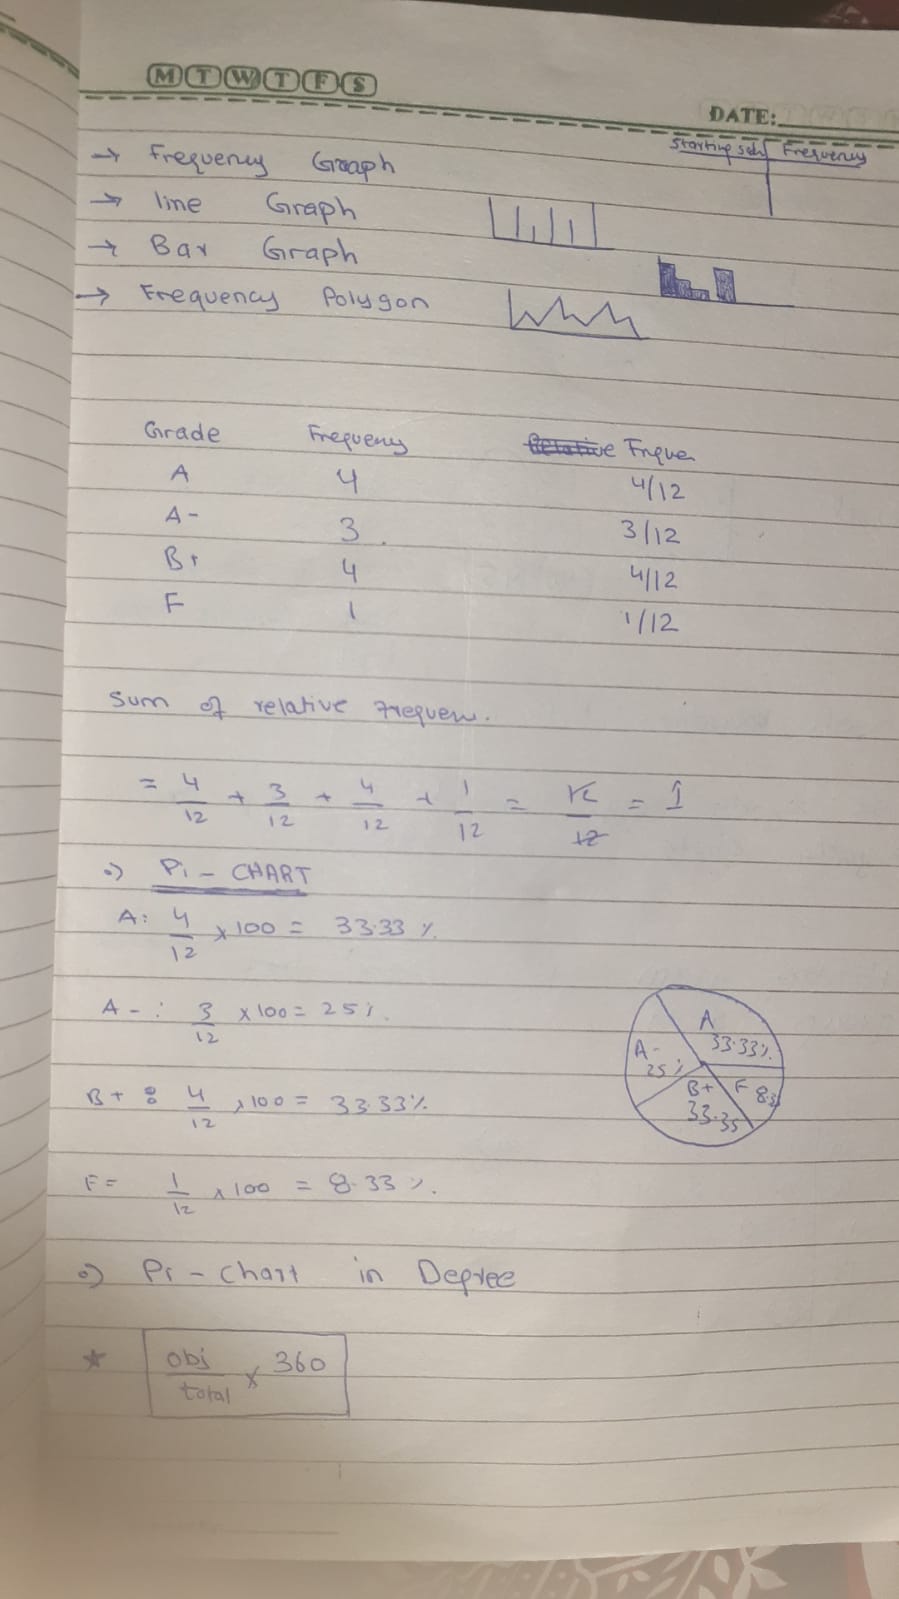 M T W T F S
DATE:
→ Frequency Graph
Frequency
→ line Graph
→ Bar Graph
→ Frequency Polygon
Grade Frequeny Relative Frque
A 4 4/12
A- 3 3/12
B+ 4 4/12
F 1 1/12
Sum of relative
= 4/12 + 3/12 + 4/12 + 1/12 = 12/12 = 1
Pi - CHART
A: 4/12 x 100 = 33.33 %
A - : 3/12 x 100 = 25%
B + : 4/12 x 100 = 33.33%
F = 1/12 x 100 = 8.33 %
A
33.33%
A-
25%
B+
33.33
F 8.3
Pi - Chart in Degree
★ obj/total x 360